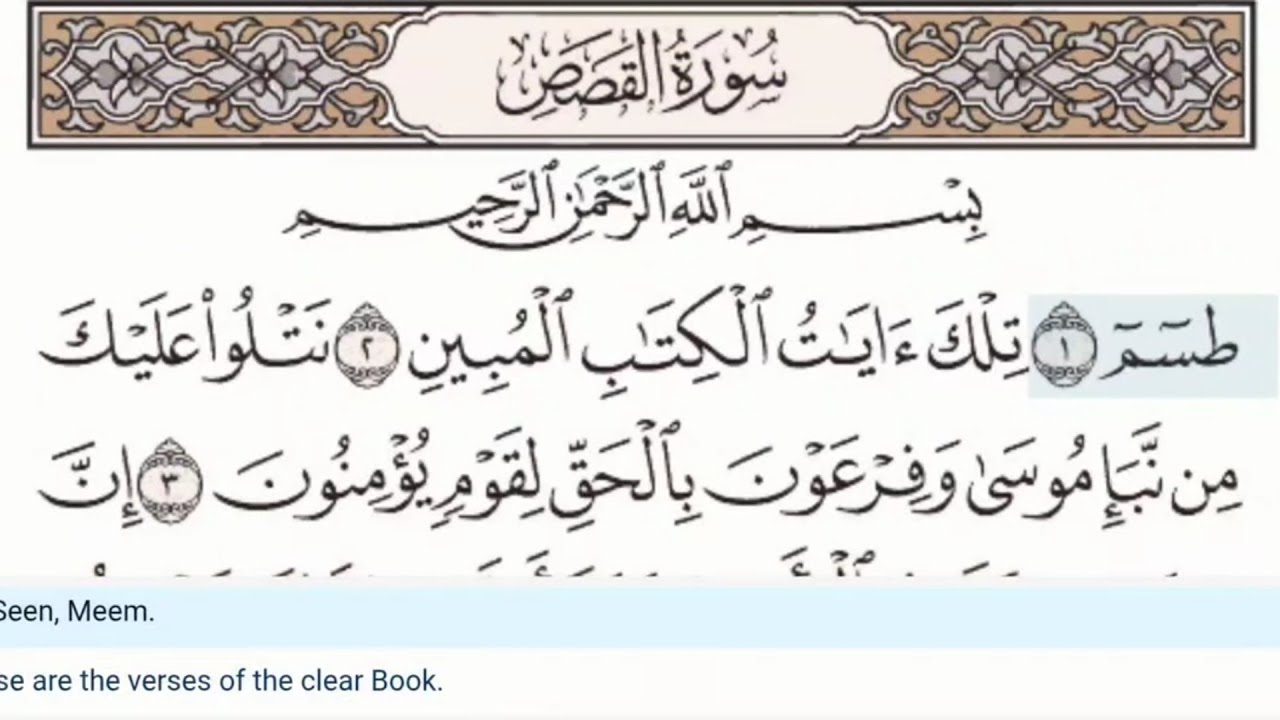 سُورَةُ القَصَصِ
بِسْمِ ٱللَّهِ ٱلرَّحْمَٰنِ ٱلرَّحِيمِ
طسٓمٓ ١ تِلْكَ ءَايَٰتُ ٱلْكِتَٰبِ ٱلْمُبِينِ ٢ نَتْلُوا۟ عَلَيْكَ
مِن نَّبَإِ مُوسَىٰ وَفِرْعَوْنَ بِٱلْحَقِّ لِقَوْمٍ يُؤْمِنُونَ ٣ إِنَّ
Seen, Meem.
se are the verses of the clear Book.